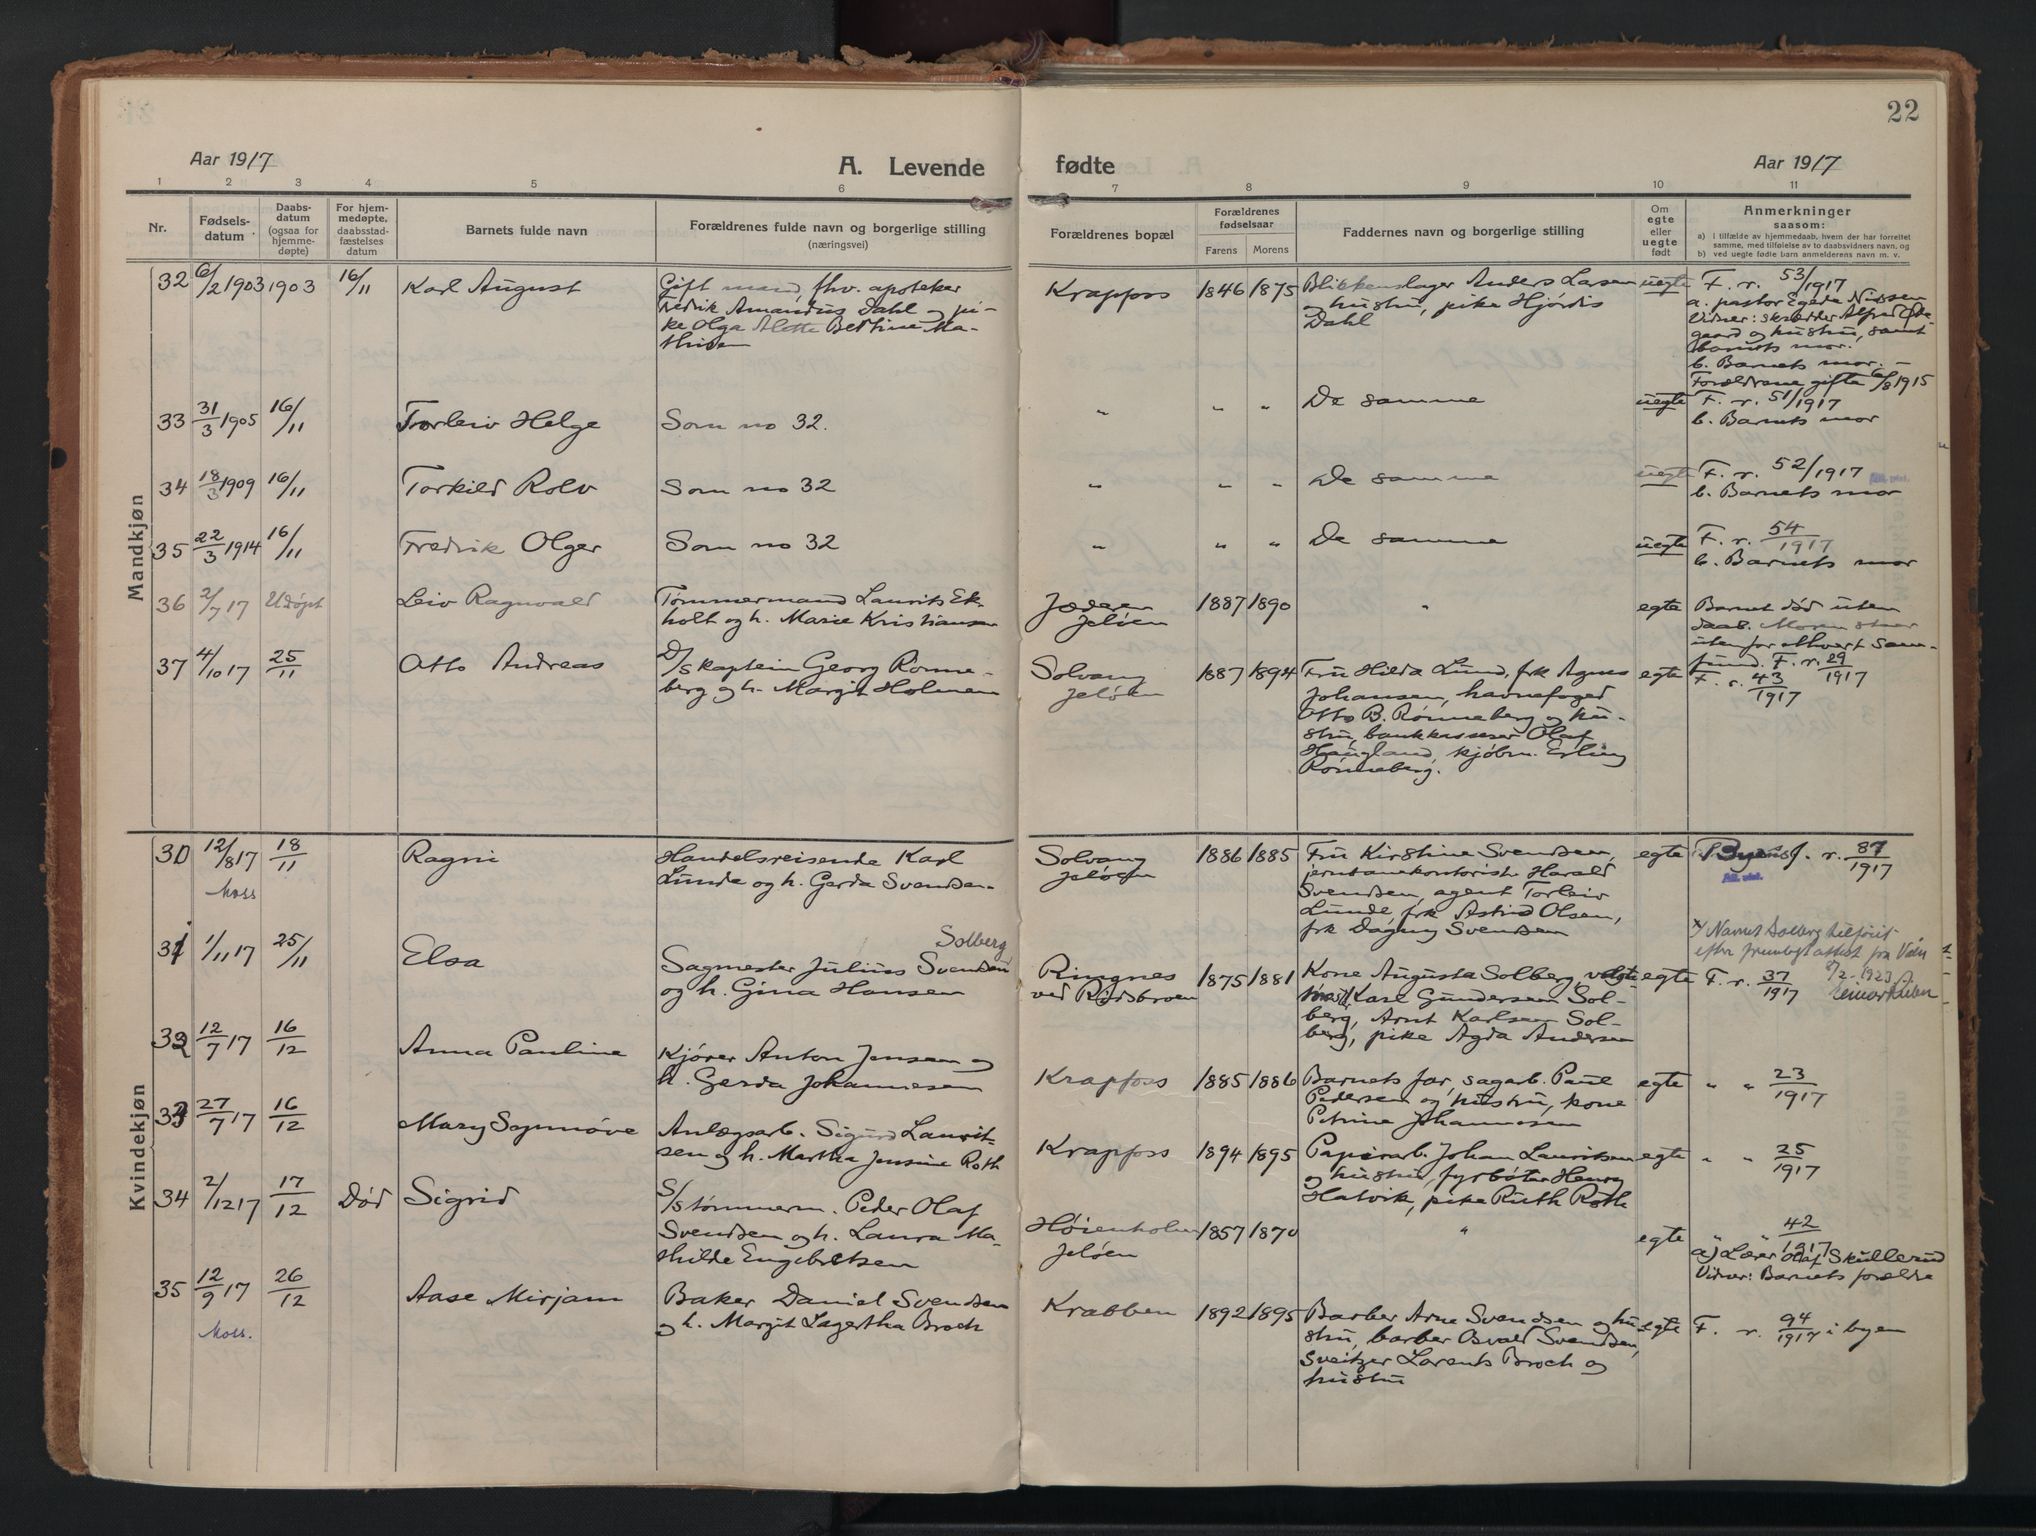 22
Aar 1917
A. Levende
fødte
Aar 1917
1 2 3 4 5 6 7 8 9 10 11
Nr.
Fødsels-
datum
Daabs-
datum
(ogsaa for
hjemme-
døpte)
For hjem-
medøpte,
daabsstad-
fæstelses
datum
Barnets fulde navn
Forældrenes fulde navn og borgerlige stilling
(næringsvei)
Forældrenes bopæl
Forældrenes
fødselsaar
Farens Morens
Faddernes navn og borgerlige stilling
Om
egte
eller
uegte
født
Anmerkninger
saasom:
a) I tilfælde av hjemmedaab, hvem der har forrettet
samme, med tilføielse av to daabsvidners navn, og
b) ved uegte født barn anmelderens navn m. v.
Mandkjøn
32 6/2 1903 1903 16/11 Karl August
Gift mand, fhv. apoteker
Fredrik Amandus Dahl og pi-
ke Olga Alette Bettine Ma-
thisen
Krapfoss 1846 1875
Blikkenslager Anders Larsen
og hustru, pike Hjørdis
Dahl
uegte
F. r. 53/1917
a. pastor Egede Nissen
Vidner: skrædder Alfred Øde-
gaard og hustru, samt
barnets mor.
b. Barnets mor. –
Forældrene gifte 6/8 1915
33 31/3 1905 16/11 Torleiv Helge
Som no 32.
" " " De samme uegte
F. r. 51/1917
b. Barnets mor
34 18/3 1909 16/11 Torkild Rolv
Som no 32
" " " De samme uegte
F. r. 52/1917
b. Barnets mor
35 22/3 1914 16/11 Fredrik Olger
Som no 32
" " " De samme uegte
F. r. 54/1917
b. Barnets mor
36 2/7 17 Udøpt Leiv Ragnvald
Tømmermand Laurits Ek-
holt og h. Marie Kristiansen
Jæderen
Jeløen
1887 1890 " egte
Barnet død uten
daab. Moren staar
utenfor ethvert sam-
fund. F. r. 29/1917
37 4/10 17 25/11 Otto Andreas
D/S kaptein Georg Rønne-
berg og h. Margit Holmen
Solvang
Jeløen
1887 1894
Fru Hilda Lund, frk Agnes
Johansen, havnefoged
Otto B. Rønneberg og hu-
stru, bankkasserer Olaf
Haugland, kjøbm. Erling
Rønneberg.
egte
F. r. 43/1917
Kvindekjøn
30 12/8 17 18/11 Ragni
Moss
Handelsreisende Karl
Lunde og h. Gerda Svendsen.
Solvang
Jeløen
1886 1885
Fru Kirstine Svendsen,
jernbanekontorist Harald
Svendsen, agent Torleiv
Lunde, frk Astrid Olsen,
frk Dagny Svendsen
egte
Byens f. r. 87/1917
31 1/11 17 25/11 Elsa
Solberg
Sagmester Julius Svendsen
og h. Gina Hansen
Ringnes
ved Rødsbroen
1875 1881
Kone Augusta Solberg,
Karl Gundersen Sol-
berg, Arnt Karlsen Sol-
berg, pike Agda Andersen
egte
x/ Navnet Solberg tilføiet
efter fremlagt attest fra
2-1923
F. r. 37/1917
32 12/7 17 16/12 Anna Pauline
Kjører Anton Jensen og
h. Gerda Johannesen
Krapfoss 1885 1886
Barnets far, sagarb. Paul
Pedersen og hustru, kone
Petrine Johannesen
egte " " 23/1917
33 27/7 17 16/12 Mary Synnøve
Anlægsarb. Sigurd Laurit-
sen og h. Martha Jensine Roth
Krapfoss 1894 1895
Papirarb. Johan Lauritsen
og hustru, fyrbøter Henry
Hatvik, pike Ruth Roth
egte " " 25/1917
34 2/12 17 17/12 Død Sigrid
S/S tømmerm. Peder Olaf
Svendsen og h. Laura Ma-
thilde Engebretsen
Høienholm
Jeløen
1857 1870 " egte
" " 42/1917
a) Lærer Olaf Skullerud
Vidner: Barnets forældre
35 12/9 17 26/12 Aase Mirjam
Moss.
Baker Daniel Svendsen
og h. Margit Lagertha Broch
Krabben 1892 1895
Barber Arne Svendsen og hu-
stru, barber Osvald Svendsen,
sveitzer Lorents Broch og
hustru
egte
F. r. 94/1917 i byen